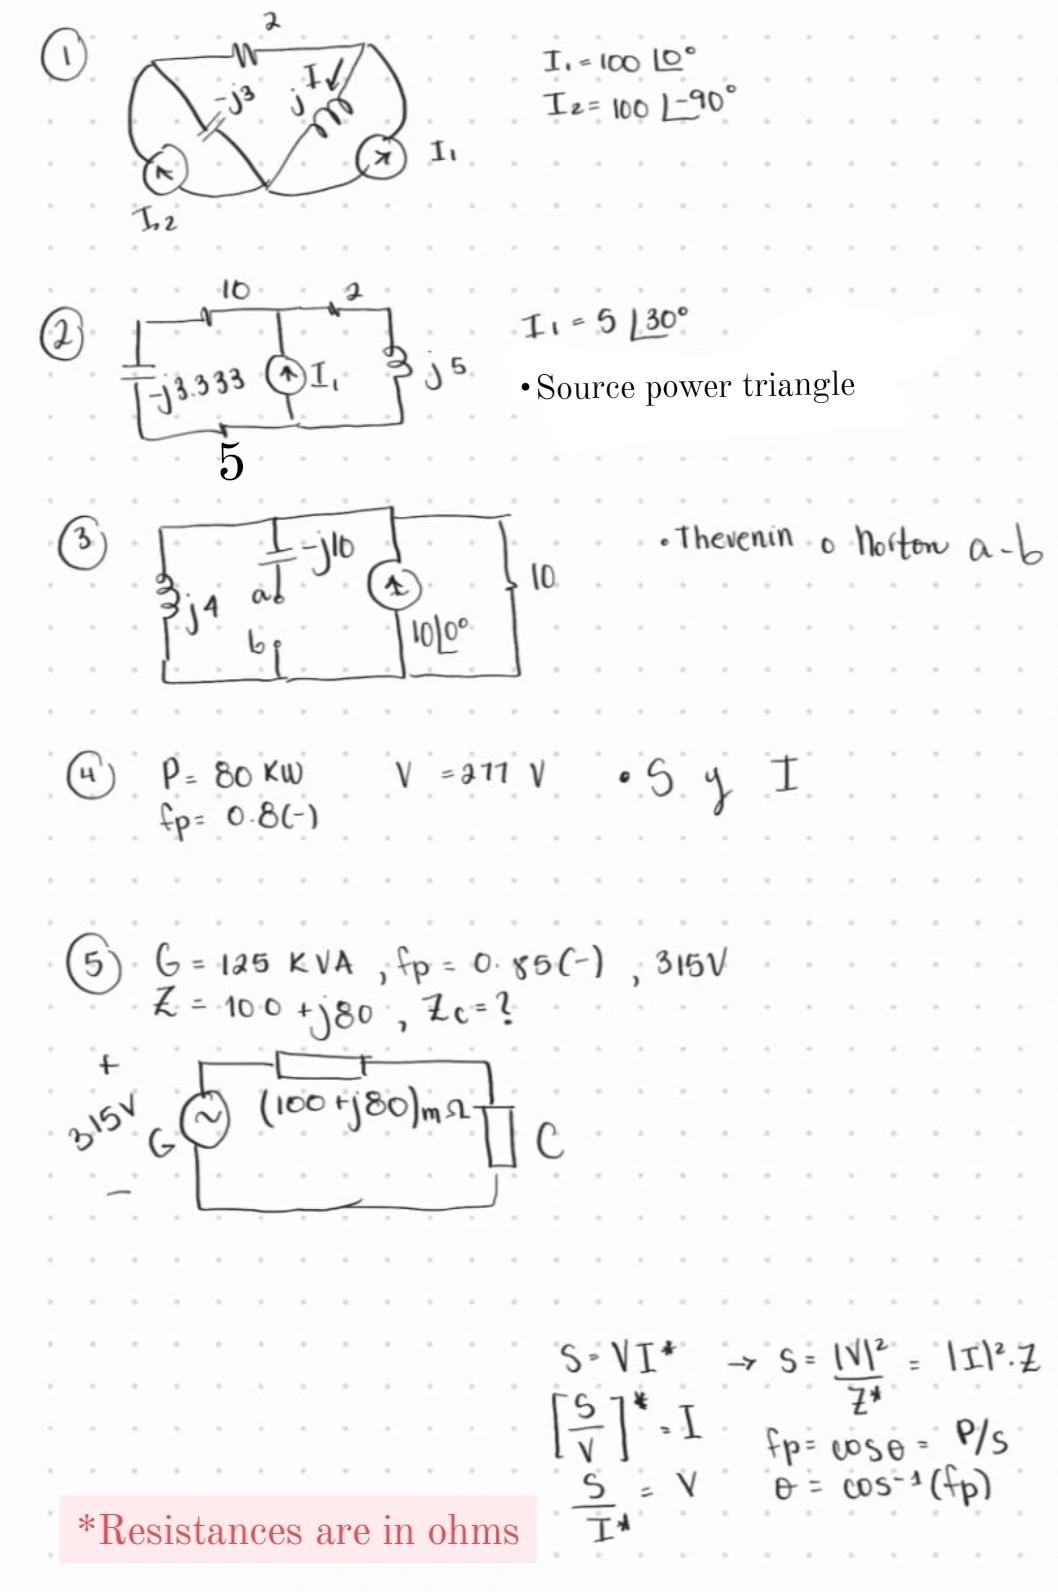 ①
2
-j3
j
I
I₁
I₂
I₁ = 100 ∠0°
I₂ = 100 ∠-90°
②
10
2
-j3.333
I₁
j5
5
I₁ = 5 ∠30°
• Source power triangle
③
j4
-j10
a
b
10∠0°
10
• Thevenin o Norton a-b
④ P= 80 KW V = 277 V • S y I
fp= 0.8(-)
⑤ G = 125 KVA , fp = 0.85(-) , 315V
Z = 100 + j80 , Zc = ?
+
315V
-
G
(100 + j80)mΩ
C
S = VI* → S = |V|²/Z* = |I|².Z
[S/V]* = I
fp = cosθ = P/S
S/I* = V
θ = cos⁻¹(fp)
*Resistances are in ohms